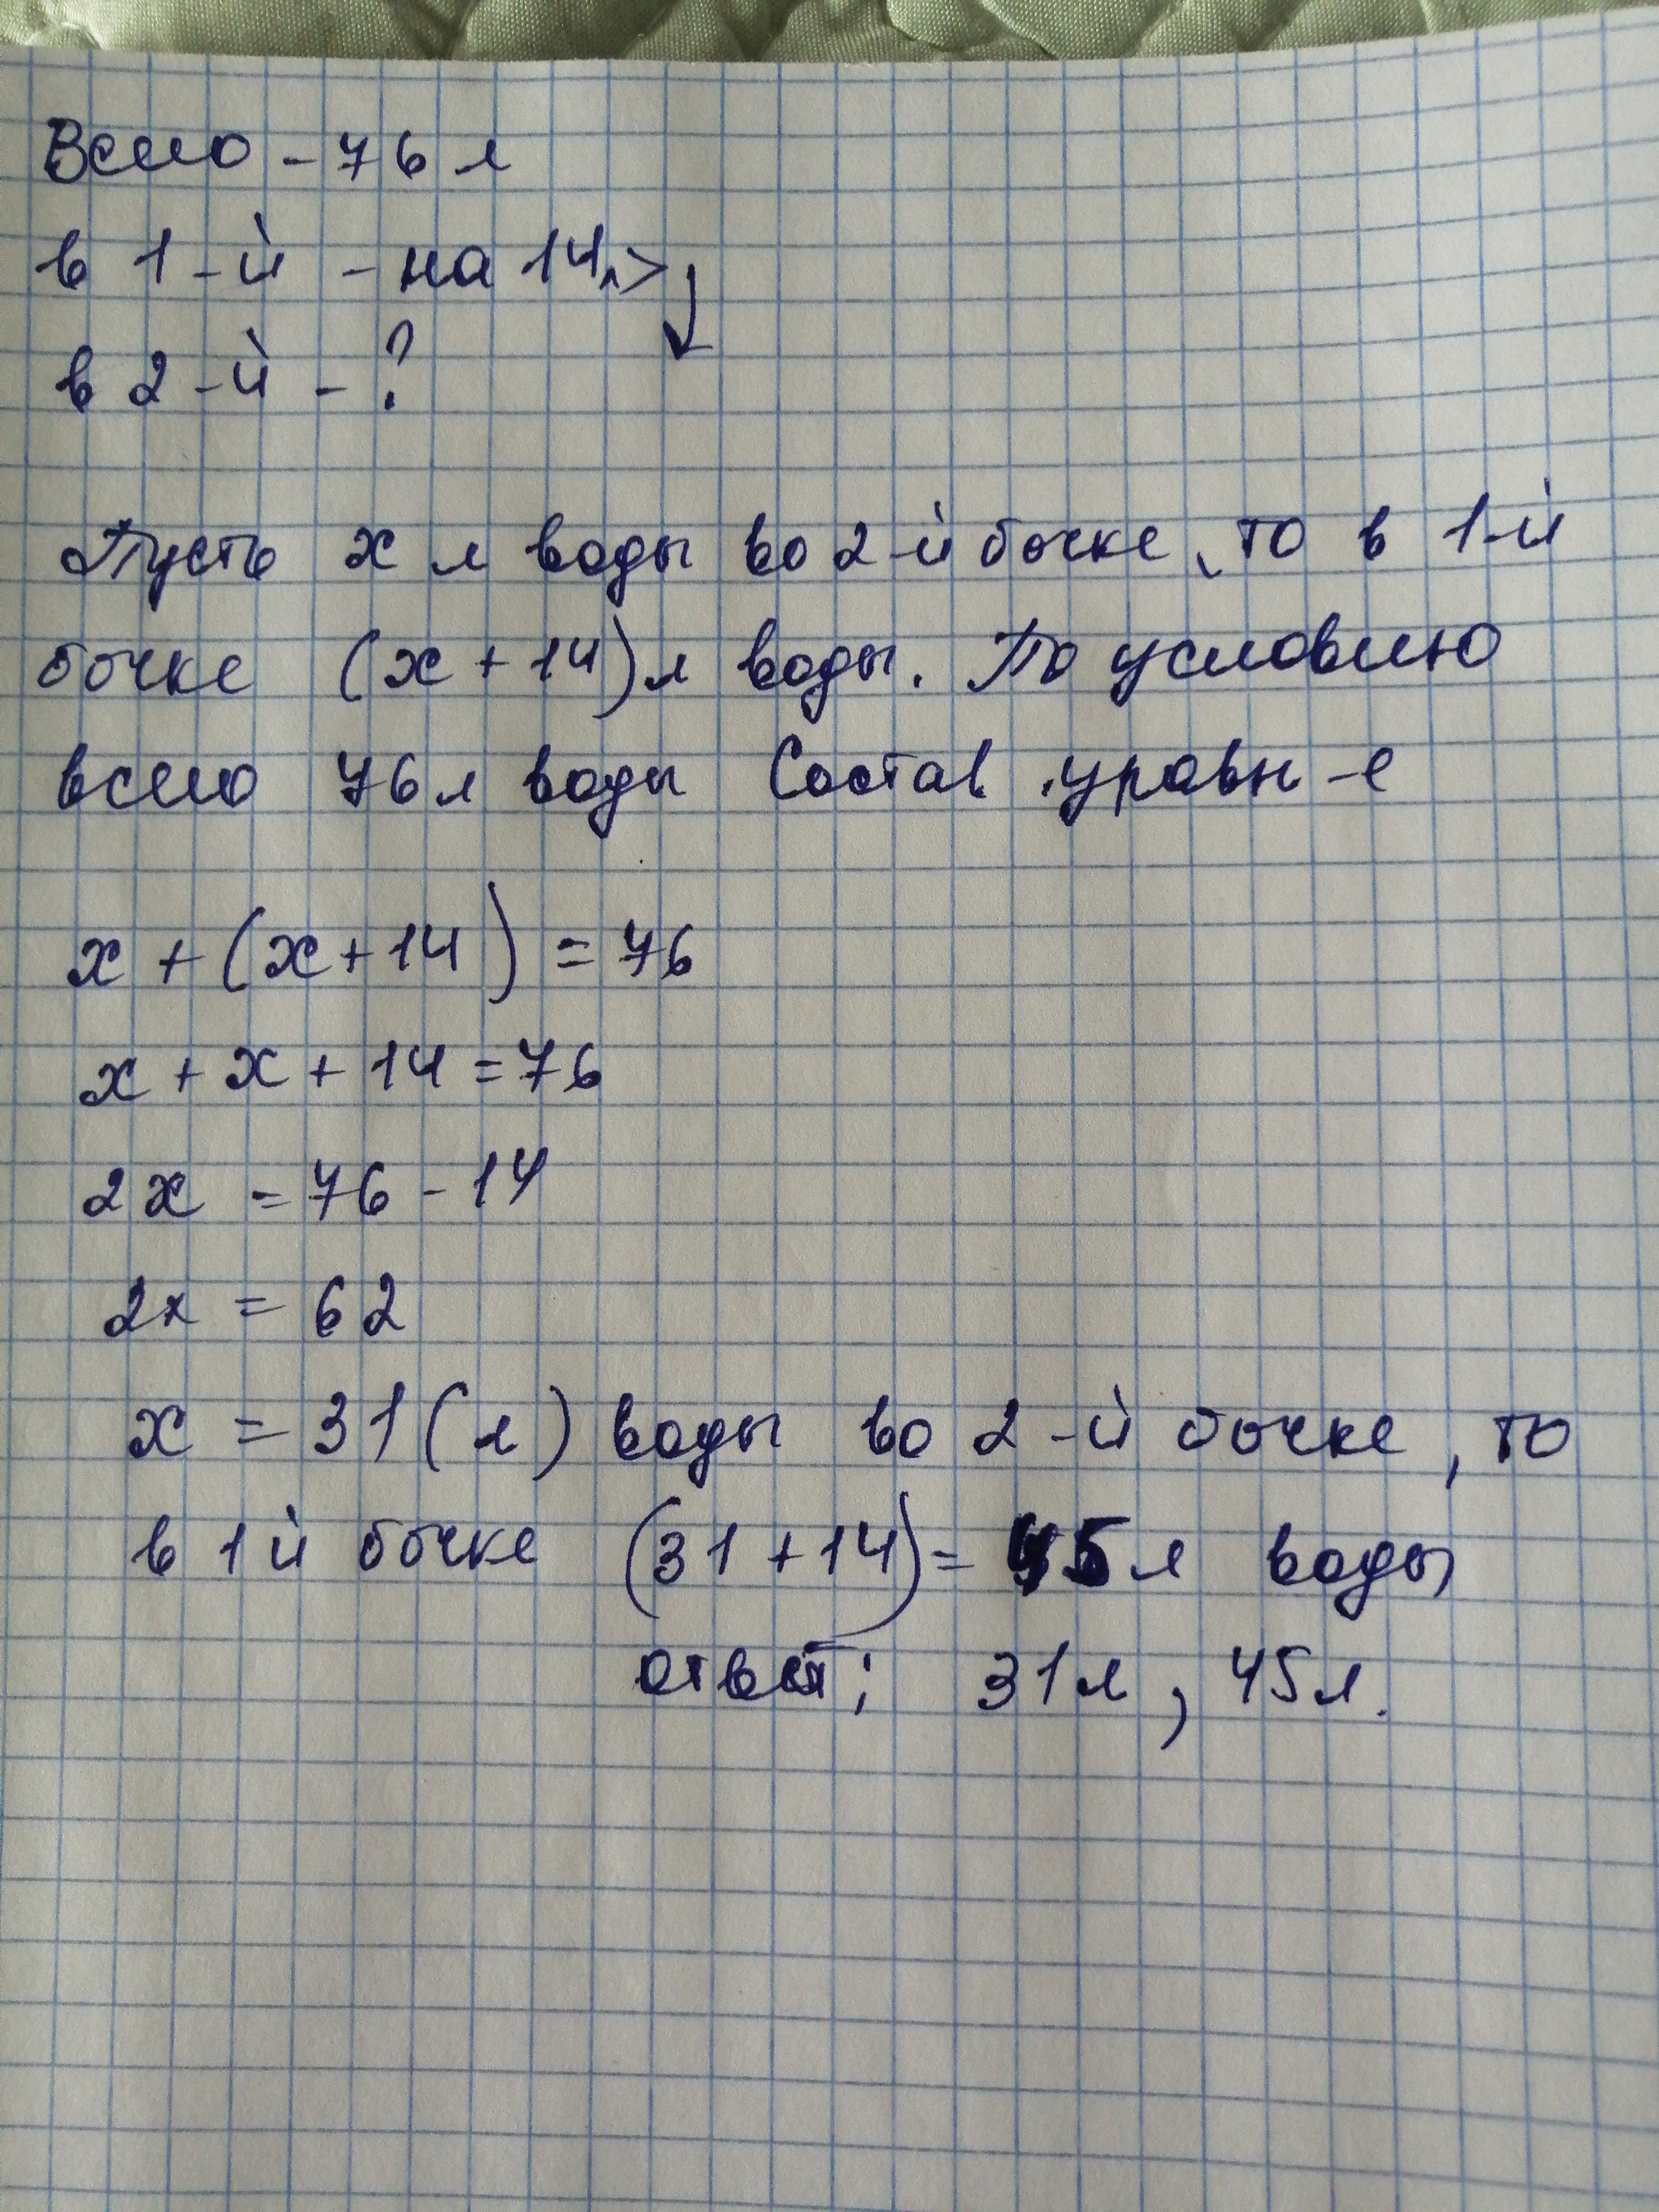 Всего - 76 л
в 1-й - на 14л>
в 2-й - ?
Пусть х л воды во 2-й бочке, то в 1-й
бочке (х + 14) л воды. По условию
всего 76 л воды Состав. уравн-е
х + (х + 14) = 76
х + х + 14 = 76
2х = 76 - 14
2х = 62
х = 31 (л) воды во 2-й бочке, то
в 1й бочке (31 + 14) = 45 л воды
ответ: 31л, 45л.